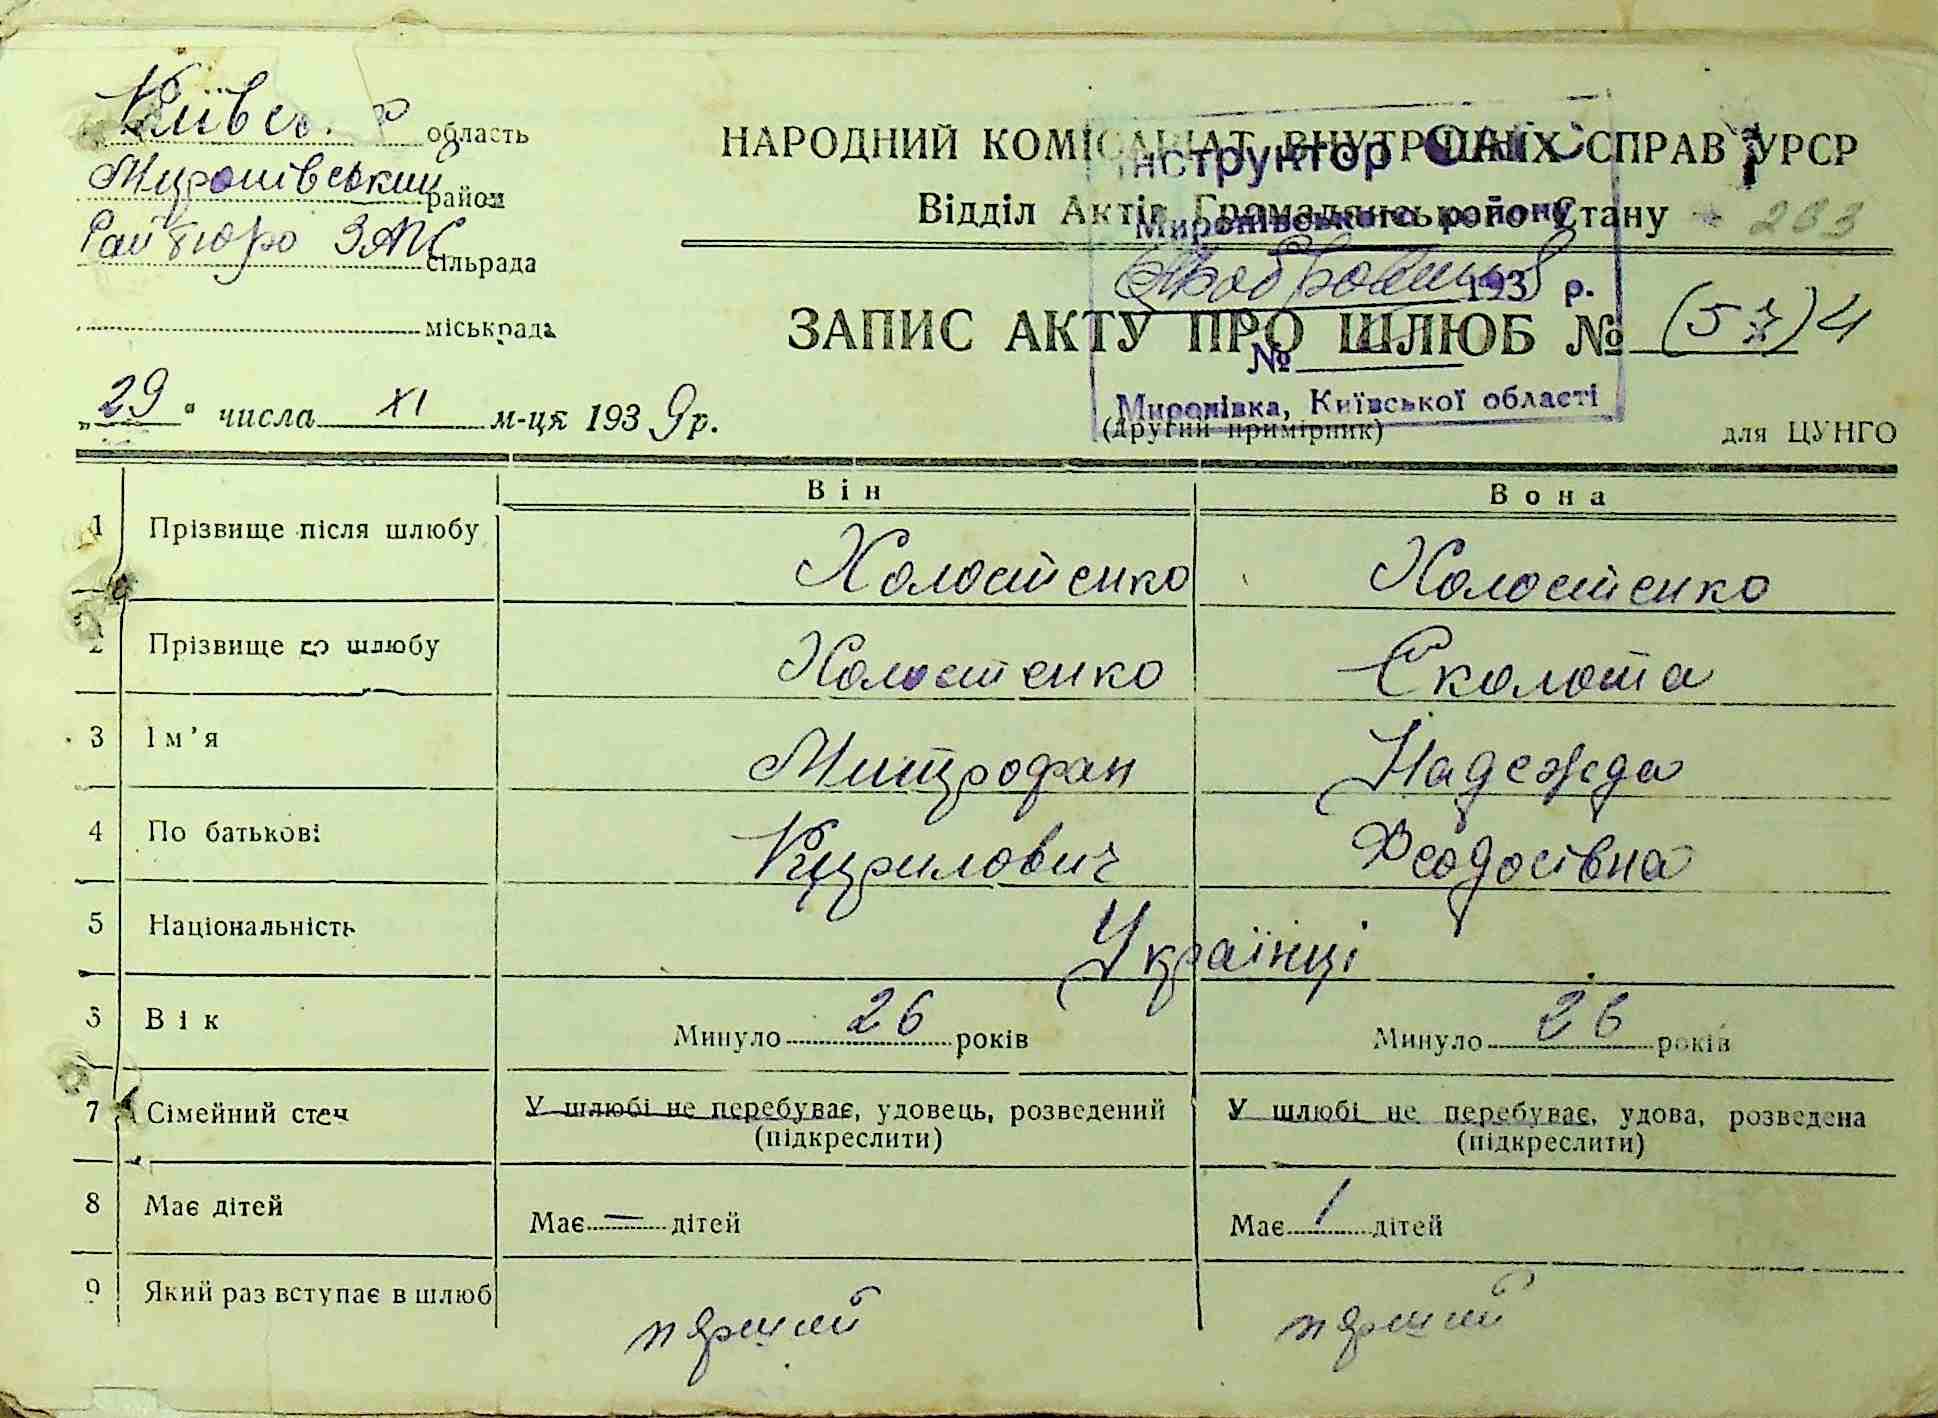 область
Миронівський район
Райбюро ЗАГС сільрада
міськрада
„29“ числа XI м-ця 1939 р.
НАРОДНИЙ КОМІСАРІАТ ВНУТРІШНІХ СПРАВ УРСР
Відділ Актів Громадянського Стану
233
ЗАПИС АКТУ ПРО ШЛЮБ № 4
(Другий примірник)
для ЦУНГО
Інструктор
Миронівського району
193 р.
№
Миронівка, Київської області
Він Вона
1 Прізвище після шлюбу Холостенко Холостенко
2 Прізвище до шлюбу Холостенко Сколота
3 Ім'я Митрофан Надежда
4 По батькові Кирилович Феодосівна
5 Національність Українці
6 Вік Минуло 26 років Минуло 26 років
7 Сімейний стан У шлюбі не перебуває, удовець, розведений У шлюбі не перебуває, удова, розведена
(підкреслити) (підкреслити)
8 Має дітей Має — дітей Має 1 дітей
9 Який раз вступає в шлюб пярший пярший